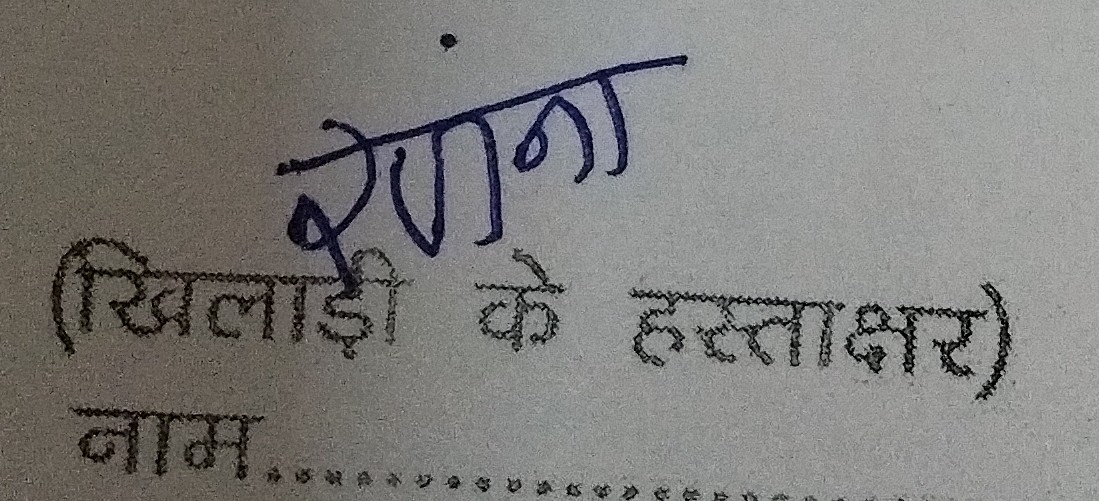 (खिलाड़ी के हस्ताक्षर)
नाम....................